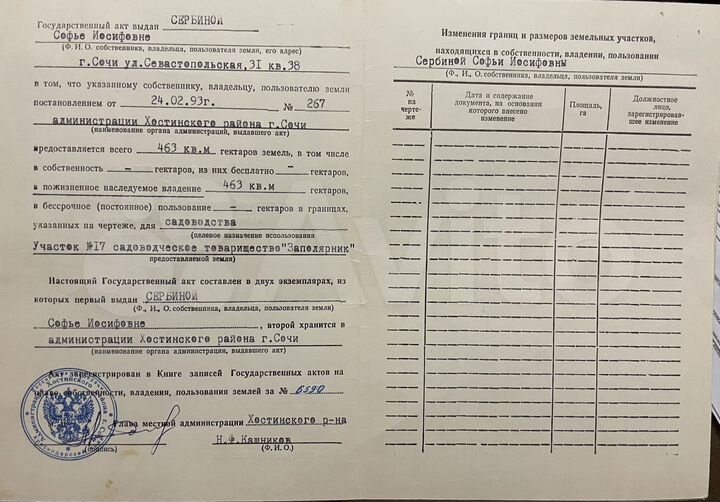 Государственный акт выдан СЕРБИНОЙ
Софье Иосифовне
(Ф. И. О. собственника, владельца, пользователя земли, его адрес)
г.Сочи ул.Севастопольская,31 кв.38
в том, что указанному собственнику, владельцу, пользователю земли
постановлением от 24.02.93г. № 267
администрации Хостинского района г.Сочи
(наименование органа администраций, выдавшего акт)
предоставляется всего 463 кв.м гектаров земель, в том числе
в собственность – гектаров, из них бесплатно – гектаров,
в пожизненное наследуемое владение 463 кв.м гектаров,
в бессрочное (постоянное) пользование – гектаров в границах,
указанных на чертеже, для садоводства
(целевое назначение использования
Участок №17 садоводческое товарищество"Заполярник"
предоставляемой земли)
Настоящий Государственный акт составлен в двух экземплярах, из
которых первый выдан СЕРБИНОЙ
(Ф., И., О. собственника, владельца, пользователя земли)
Софье Иосифовне , второй хранится в
администрации Хостинского района г.Сочи
(наименование органа администрации, выдавшего акт)
Акт зарегистрирован в Книге записей Государственных актов на
право собственности, владения, пользования землей за № 6590
Глава местной администрации Хостинского р-на
Н.Ф.Кашников
(подпись) (Ф. И. О.)
Изменения границ и размеров земельных участков,
находящихся в собственности, владении, пользовании
Сербиной Софьи Иосифовны
(Ф., И., О. собственника, владельца, пользователя земли)
№ на черте-же
Дата и содержание документа, на основании которого внесено изменение
Площадь, га
Должностное лицо, зарегистрировав-шее изменение
Avito